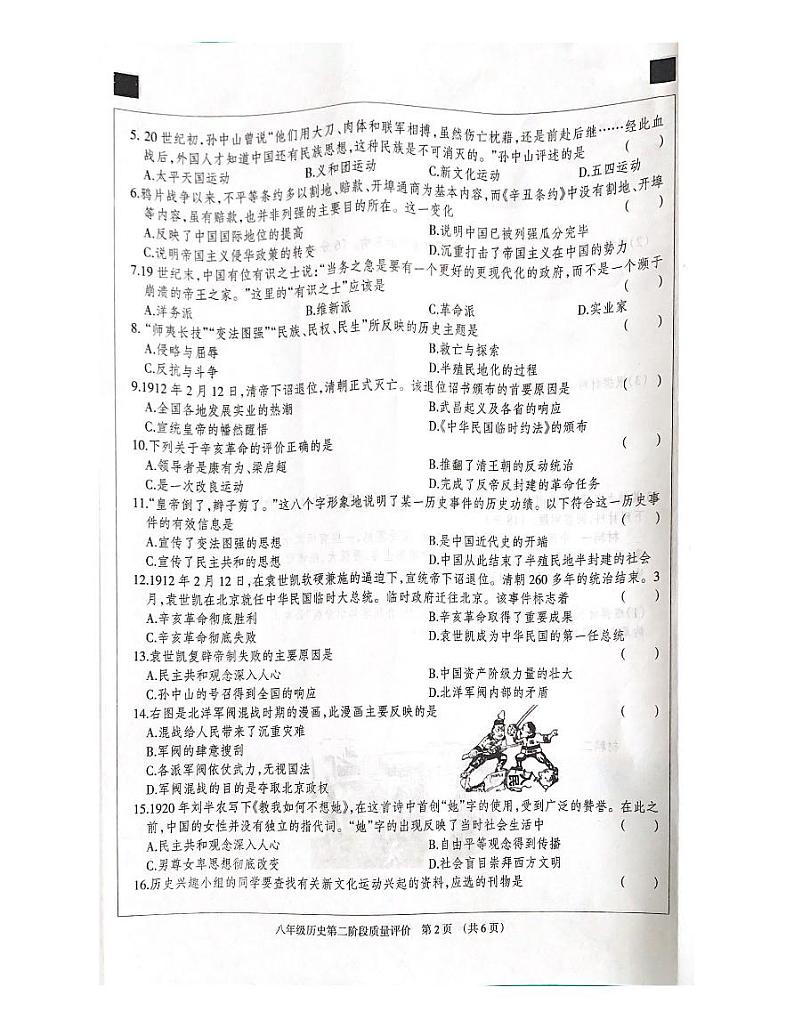 5. 20 世纪初,孙中山曾说“他们用大刀、肉体和联军相搏,虽然伤亡枕藉,还是前赴后继……经此血
战后,外国人才知道中国还有民族思想,这种民族是不可消灭的。”孙中山评述的是 ( )
A.太平天国运动 B.义和团运动 C.新文化运动 D.五四运动
6.鸦片战争以来,不平等条约多以割地、赔款、开埠通商为基本内容,而《辛丑条约》中没有割地、开埠
等内容,虽有赔款,也并非列强的主要目的所在。这一变化 ( )
A.反映了中国国际地位的提高 B.说明中国已被列强瓜分完毕
C.说明帝国主义侵华政策的转变 D.沉重打击了帝国主义在中国的势力
7.19 世纪末,中国有位有识之士说:“当务之急是要有一个更好的更现代化的政府,而不是一个濒于
崩溃的帝王之家。”这里的“有识之士”应该是 ( )
A.洋务派 B.维新派 C.革命派 D.实业家
8. “师夷长技”“变法图强”“民族、民权、民生”所反映的历史主题是 ( )
A.侵略与屈辱 B.救亡与探索
C.反抗与斗争 D.半殖民地化的过程
9.1912 年 2 月 12 日,清帝下诏退位,清朝正式灭亡。该退位诏书颁布的首要原因是 ( )
A.全国各地发展实业的热潮 B.武昌起义及各省的响应
C.宣统皇帝的幡然醒悟 D.《中华民国临时约法》的颁布
10.下列关于辛亥革命的评价正确的是 ( )
A.领导者是康有为、梁启超 B.推翻了清王朝的反动统治
C.是一次改良运动 D.完成了反帝反封建的革命任务
11.“皇帝倒了,辫子剪了。”这八个字形象地说明了某一历史事件的历史功绩。以下符合这一历史事
件的有效信息是 ( )
A.宣传了变法图强的思想 B.是中国近代史的开端
C.宣传了民主共和的思想 D.中国从此结束了半殖民地半封建的社会
12.1912 年 2 月 12 日,在袁世凯软硬兼施的逼迫下,宣统帝下诏退位。清朝 260 多年的统治结束。3
月,袁世凯在北京就任中华民国临时大总统。临时政府迁往北京。该事件标志着 ( )
A.辛亥革命彻底胜利 B.辛亥革命取得了重要成果
C.辛亥革命彻底失败 D.袁世凯成为中华民国的第一任总统
13.袁世凯复辟帝制失败的主要原因是 ( )
A.民主共和观念深入人心 B.中国资产阶级力量的壮大
C.孙中山的号召得到全国的响应 D.北洋军阀内部的矛盾
14.右图是北洋军阀混战时期的漫画,此漫画主要反映的是 ( )
A.混战给人民带来了沉重灾难
B.军阀的肆意搜刮
C.各派军阀依仗武力,无视国法
D.军阀混战的目的是夺取北京政权
15.1920 年刘半农写下《教我如何不想她》,在这首诗中首创“她”字的使用,受到广泛的赞誉。在此之
前,中国的女性并没有独立的指代词。“她”字的出现反映了当时社会生活中 ( )
A.民主共和观念深入人心 B.自由平等观念得到传播
C.男尊女卑思想彻底改变 D.社会盲目崇拜西方文明
16.历史兴趣小组的同学要查找有关新文化运动兴起的资料,应选的刊物是 ( )
八年级历史第二阶段质量评价 第 2 页 (共 6 页)